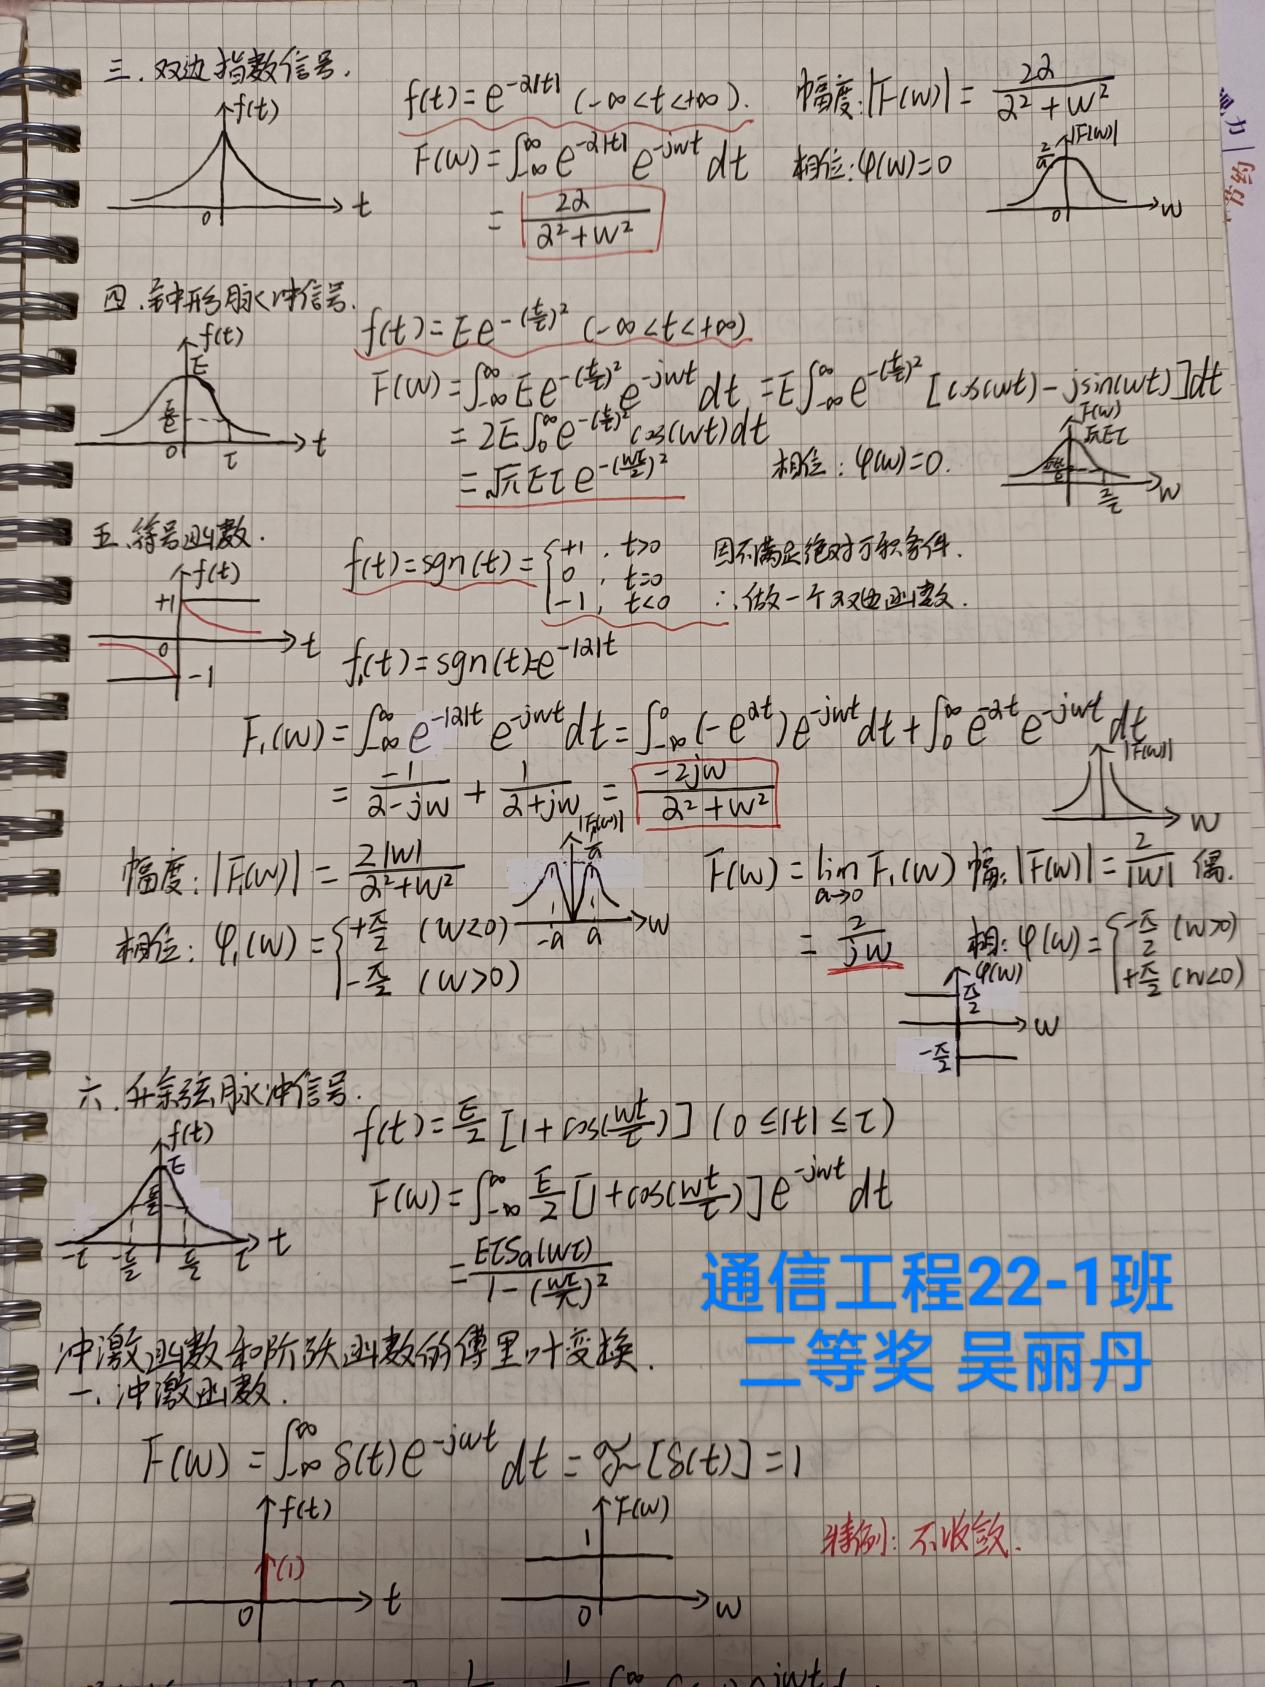 三.双边指数信号.
f(t)
0
t
f(t)=e^{-2|t|} (-∞<t<+∞).
F(W)=∫_{-∞}^{∞} e^{-2|t|} e^{-jwt} dt
= 22/(2²+W²)
幅度:|F(W)|=22/(2²+W²)
相位:φ(W)=0
|F(W)|
2/a
0
W
四.钟形脉冲信号.
f(t)
E
E/e
0
τ
t
f(t)=Ee^{-(t/τ)²} (-∞<t<+∞)
F(W)=∫_{-∞}^{∞} Ee^{-(t/τ)²} e^{-jwt} dt=E∫_{-∞}^{∞} e^{-(t/τ)²} [cos(wt)-jsin(wt)]dt
=2E∫_{0}^{∞} e^{-(t/τ)²} cos(wt)dt
=√π Eτ e^{-(wτ/2)²}
相位:φ(W)=0.
F(W)
√πEτ
2/τ
W
五.符号函数.
f(t)
+1
0
t
-1
f(t)=sgn(t)={+1, t>0
0, t=0
-1, t<0
因不满足绝对可积条件.
∴做一个双边函数.
f₁(t)=sgn(t)·e^{-|2|t}
F₁(W)=∫_{-∞}^{∞} e^{-|2|t} e^{-jwt} dt=∫_{-∞}^{0} (-e^{2t})e^{-jwt} dt+∫_{0}^{∞} e^{-2t} e^{-jwt} dt
= -1/(2-jw) + 1/(2+jw) = -2jw/(2²+W²)
|F(W)|
W
幅度:|F₁(W)|=2|W|/(2²+W²)
|F₁(W)|
-a
a
W
相位:φ₁(W)={+π/2 (W<0)
-π/2 (W>0)
F(W)=lim_{a→0} F₁(W) 幅:|F(W)|=2/|W| 偶.
=2/jw
相:φ(W)={-π/2 (W>0)
+π/2 (W<0)
φ(W)
π/2
W
-π/2
六.升余弦脉冲信号.
f(t)
E
E/2
-τ
-τ/2
τ/2
τ
t
f(t)=E/2[1+cos(wt/τ)] (0≤|t|≤τ)
F(W)=∫_{-∞}^{∞} E/2[1+cos(wt/τ)]e^{-jwt} dt
=EτSa(Wτ)/(1-(wτ/π)²)
通信工程22-1班
二等奖 吴丽丹
冲激函数和阶跃函数的傅里叶变换.
一.冲激函数.
F(W)=∫_{-∞}^{∞} δ(t)e^{-jwt} dt=ℱ[δ(t)]=1
f(t)
(1)
0
t
F(W)
1
0
W
特例:不收敛.